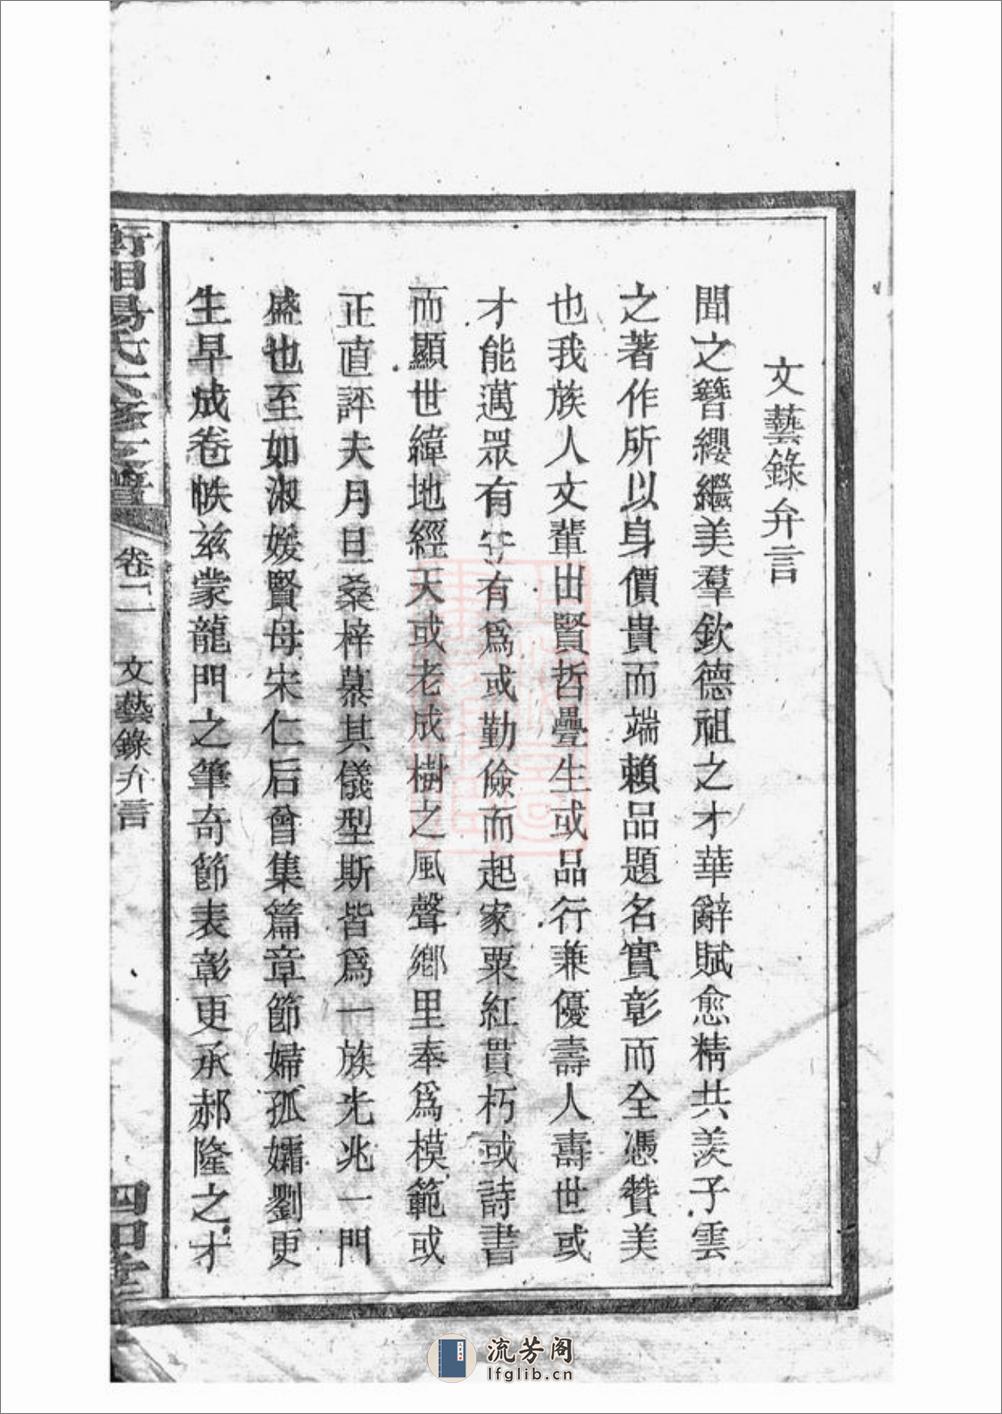 文藝錄弁言
聞之簪纓繼美羣欽德祖之才華辭賦愈精共羨子雲
之著作所以身價貴而端賴品題名實彰而全憑贊美
也我族人文輩出賢哲疊生或品行兼優壽人壽世或
才能邁眾有守有為或勤儉而起家粟紅貫朽或詩書
而顯世緯地經天或老成樹之風聲鄉里奉為模範或
正直評夫月旦桑梓慕其儀型斯皆為一族光兆一門
盛也至如淑媛賢母宋仁后曾集篇章節婦孤孀劉更
生早成卷帙茲蒙龍門之筆奇節表彰更承郝隆之才
衡湘楊氏六修支譜
卷二
文藝錄弁言
四知堂
流芳阁
lfglib.cn